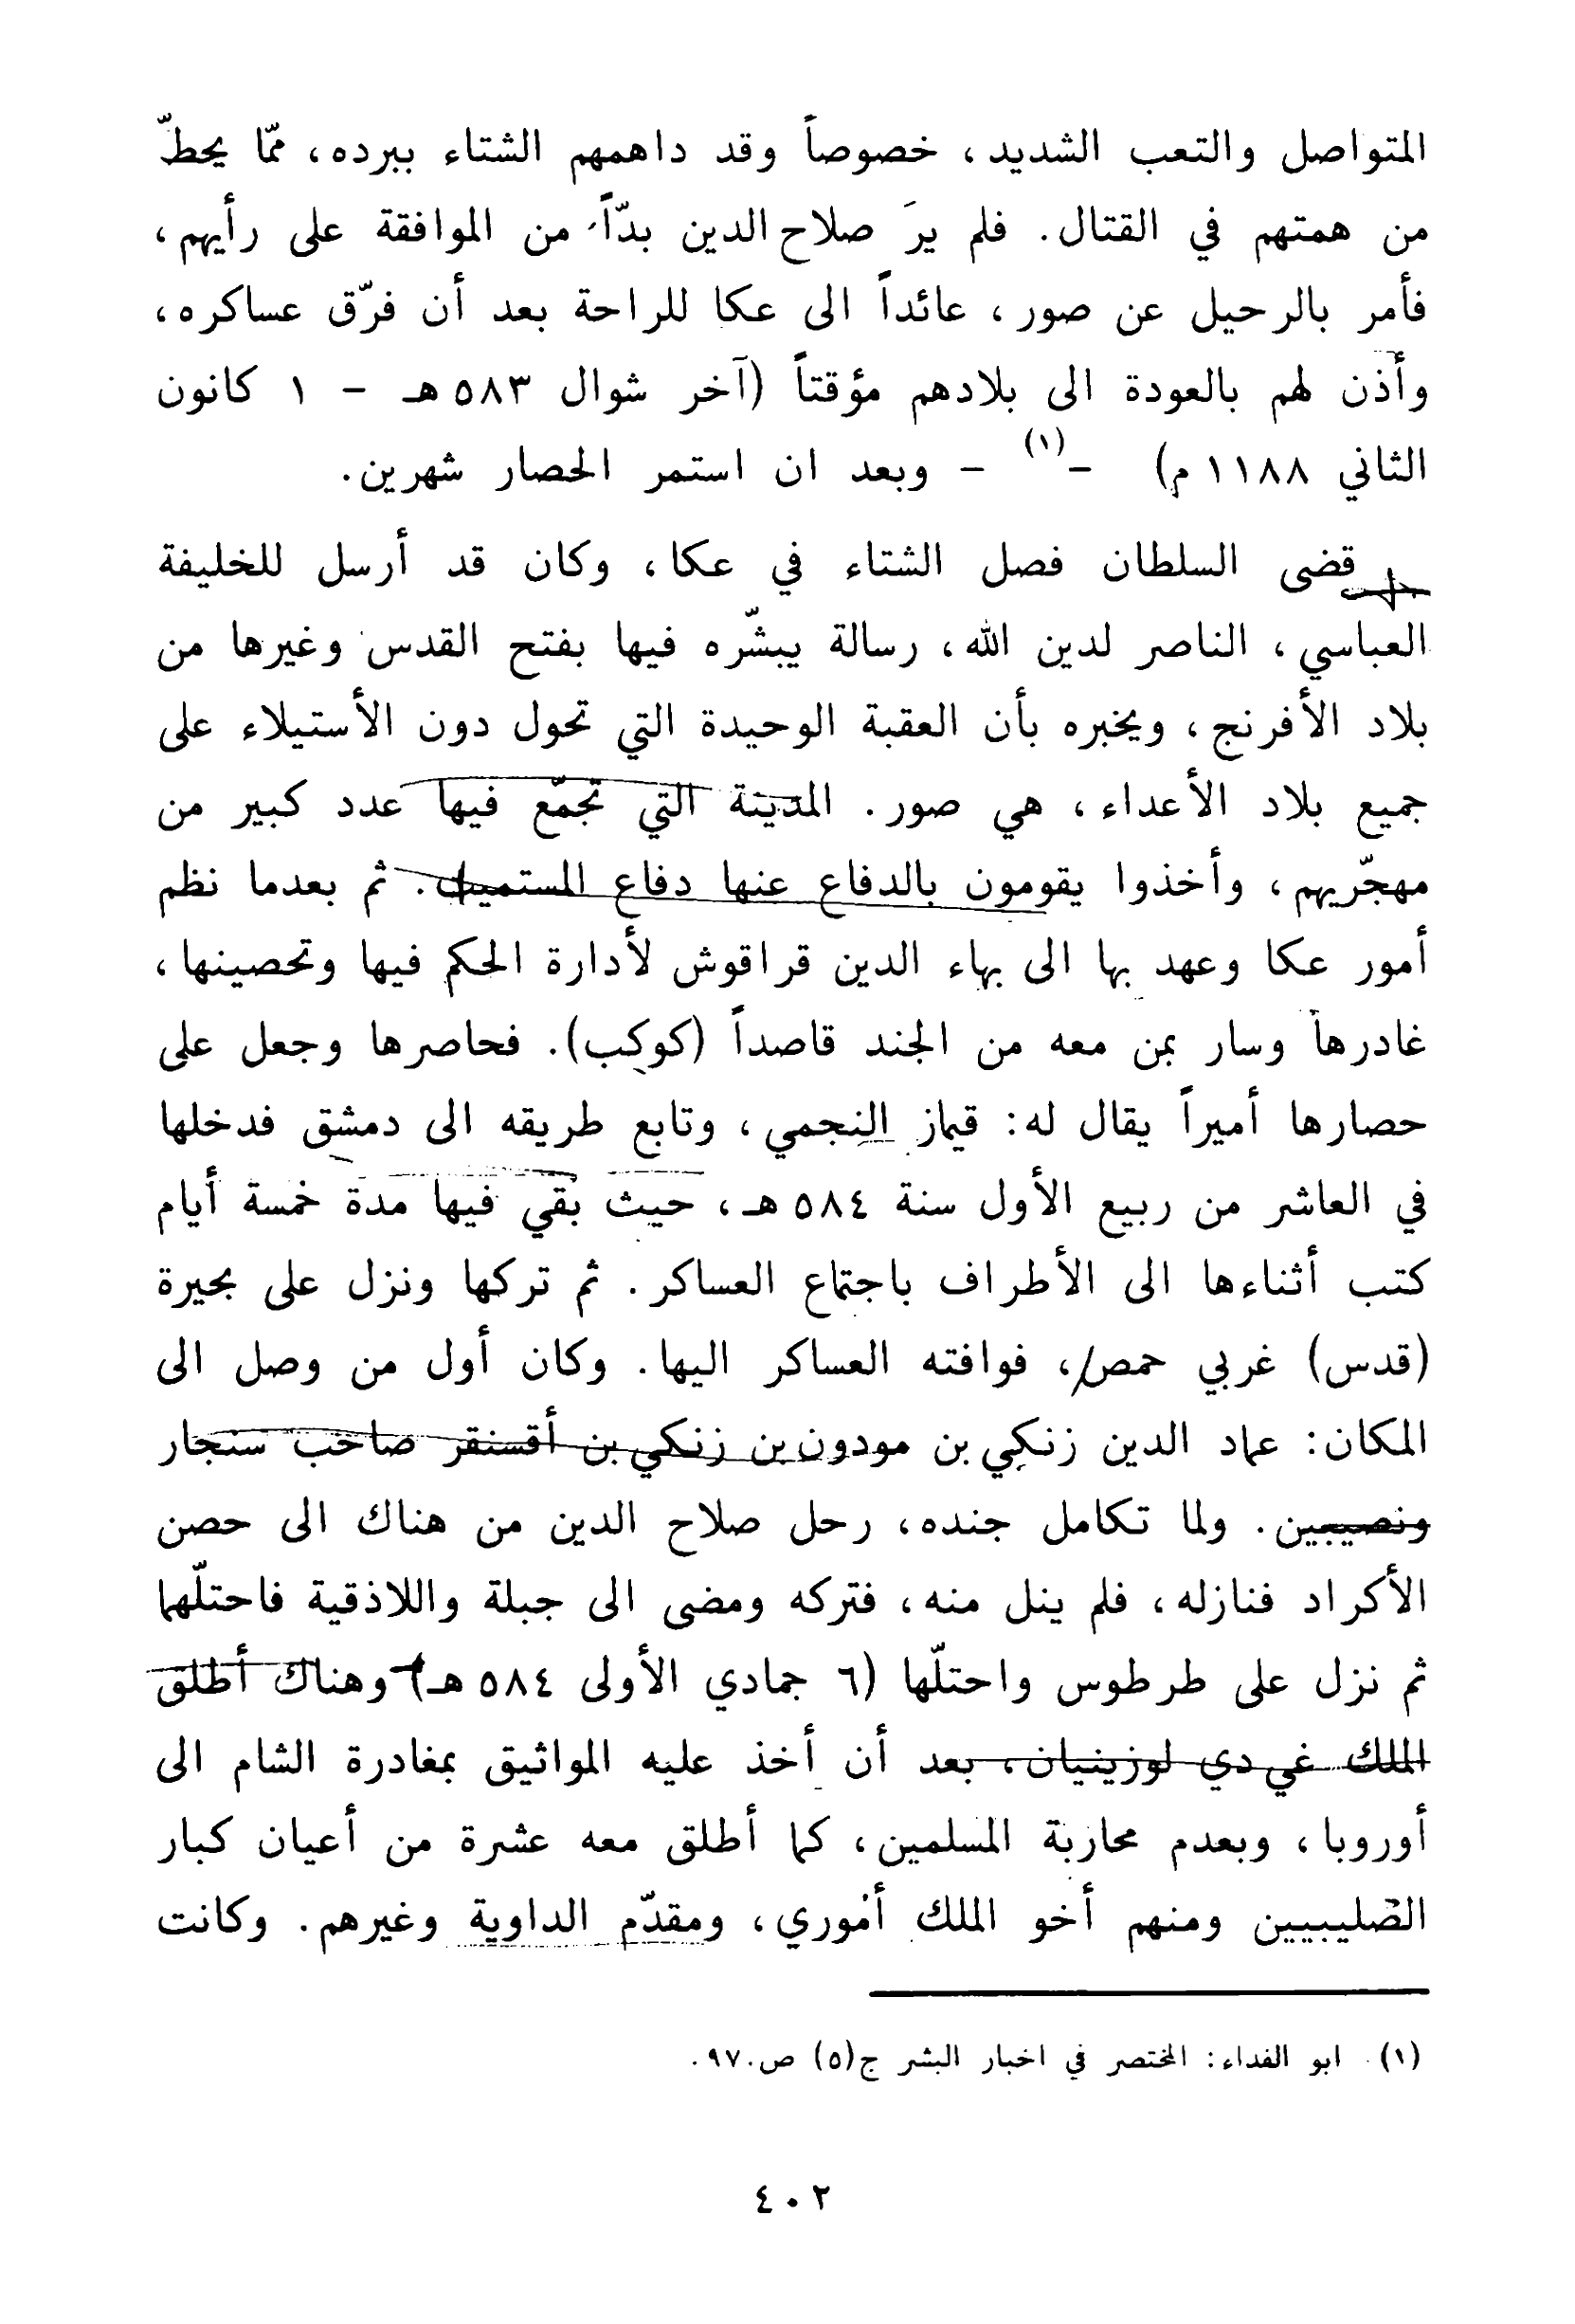 المتواصل والتعب الشديد، خصوصاً وقد داهمهم الشتاء ببرده، ممّا يحطّ
من همتهم في القتال. فلم يرَ صلاح الدين بدّاً من الموافقة على رأيهم،
فأمر بالرحيل عن صور، عائداً الى عكا للراحة بعد أن فرّق عساكره،
وأذن لهم بالعودة الى بلادهم مؤقتاً (آخر شوال ٥٨٣ هـ - ١ كانون
الثاني ١١٨٨ م) -(١) - وبعد ان استمر الحصار شهرين.
قضى السلطان فصل الشتاء في عكا، وكان قد أرسل للخليفة
العباسي، الناصر لدين الله، رسالة يبشّره فيها بفتح القدس وغيرها من
بلاد الأفرنج، ويخبره بأن العقبة الوحيدة التي تحول دون الأستيلاء على
جميع بلاد الأعداء، هي صور. المدينة التي تجمّع فيها عدد كبير من
مهجّريهم، وأخذوا يقومون بالدفاع عنها دفاع المستميت. ثم بعدما نظم
أمور عكا وعهد بها الى بهاء الدين قراقوش لأدارة الحكم فيها وتحصينها،
غادرها وسار بمن معه من الجند قاصداً (كوكب). فحاصرها وجعل على
حصارها أميراً يقال له: قيماز النجمي، وتابع طريقه الى دمشق فدخلها
في العاشر من ربيع الأول سنة ٥٨٤ هـ، حيث بقي فيها مدة خمسة أيام
كتب أثناءها الى الأطراف باجتماع العساكر. ثم تركها ونزل على بحيرة
(قدس) غربي حمص، فوافته العساكر اليها. وكان أول من وصل الى
المكان: عماد الدين زنكي بن مودون بن زنكي بن أقسنقر صاحب سنجار
ونصيبين. ولما تكامل جنده، رحل صلاح الدين من هناك الى حصن
الأكراد فنازله، فلم ينل منه، فتركه ومضى الى جبلة واللاذقية فاحتلّهما
ثم نزل على طرطوس واحتلّها (٦ جمادي الأولى ٥٨٤ هـ) وهناك أطلق
الملك غي دي لوزينيان، بعد أن أخذ عليه المواثيق بمغادرة الشام الى
أوروبا، وبعدم محاربة المسلمين، كما أطلق معه عشرة من أعيان كبار
الصليبيين ومنهم أخو الملك أموري، ومقدّم الداوية وغيرهم. وكانت
(١) ابو الفداء: المختصر في اخبار البشر ج(٥) ص.٩٧.
٤٠٢